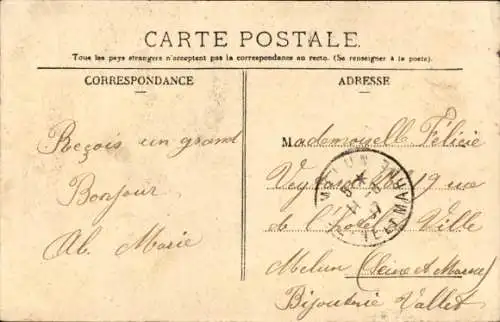 CARTE POSTALE.
Tous les pays étrangers n'acceptent pas la correspondance au recto. (Se renseigner à la poste).
CORRESPONDANCE
Reçois un grand
Bonjour
Al. Marie
ADRESSE
Mademoiselle Félicie
19 rue
de l'hotel Ville
Melun (Seine et Marne)
Bijouterie Vallet